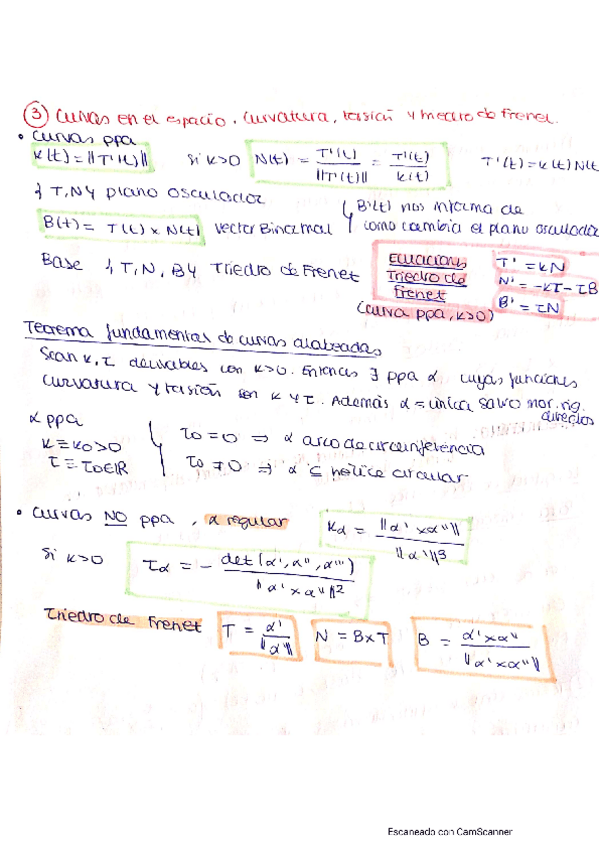 ③ Curvas en el espacio. Curvatura, torsión y triedro de Frenet.
• Curvas ppa
k(t) = ||T'(t)||   Si k>0   N(t) = T'(t)/||T'(t)|| = T'(t)/k(t)   T'(t) = k(t) N(t
{T,N} plano osculador
B(t) = T(t) x N(t) vector Binormal   B'(t) nos informa de
como cambia el plano osculador
Base {T, N, B} Triedro de Frenet
Ecuaciones   T' = kN
Triedro de   N' = -kT - τB
Frenet   B' = τN
(curva ppa, k>0)
Teorema fundamental de curvas alabeadas
Sean k, τ derivables con k>0. Entonces ∃ ppa α cuyas funciones
curvatura y torsión son k y τ. Además α = única salvo mov. rig.
directos
α ppa
k ≡ k0 > 0   τ0 = 0 ⇒ α arco de circunferencia
τ ≡ τ0 ∈ ℝ   τ0 ≠ 0 ⇒ α ⊂ hélice circular
• Curvas NO ppa, α regular   kα = ||α' x α''|| / ||α'||³
Si k>0   τα = - det(α', α'', α''') / ||α' x α''||²
Triedro de Frenet   T = α'/||α'||   N = B x T   B = α' x α'' / ||α' x α''||
Escaneado con CamScanner